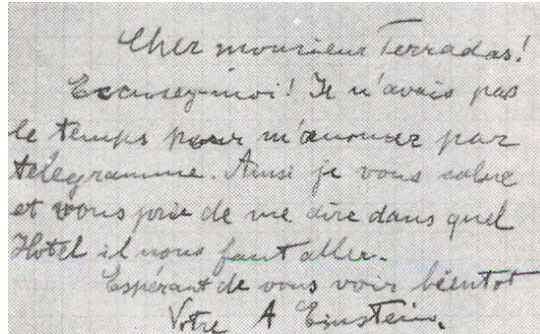 Cher monsieur Terradas!
Excusez-moi! Je n'avais pas
le temps pour m'anoncer par
télégramme. Ainsi je vous salue
et vous prie de me dire dans quel
Hotel il nous faut aller.
Espérant de vous voir bientot
Votre A Einstein.